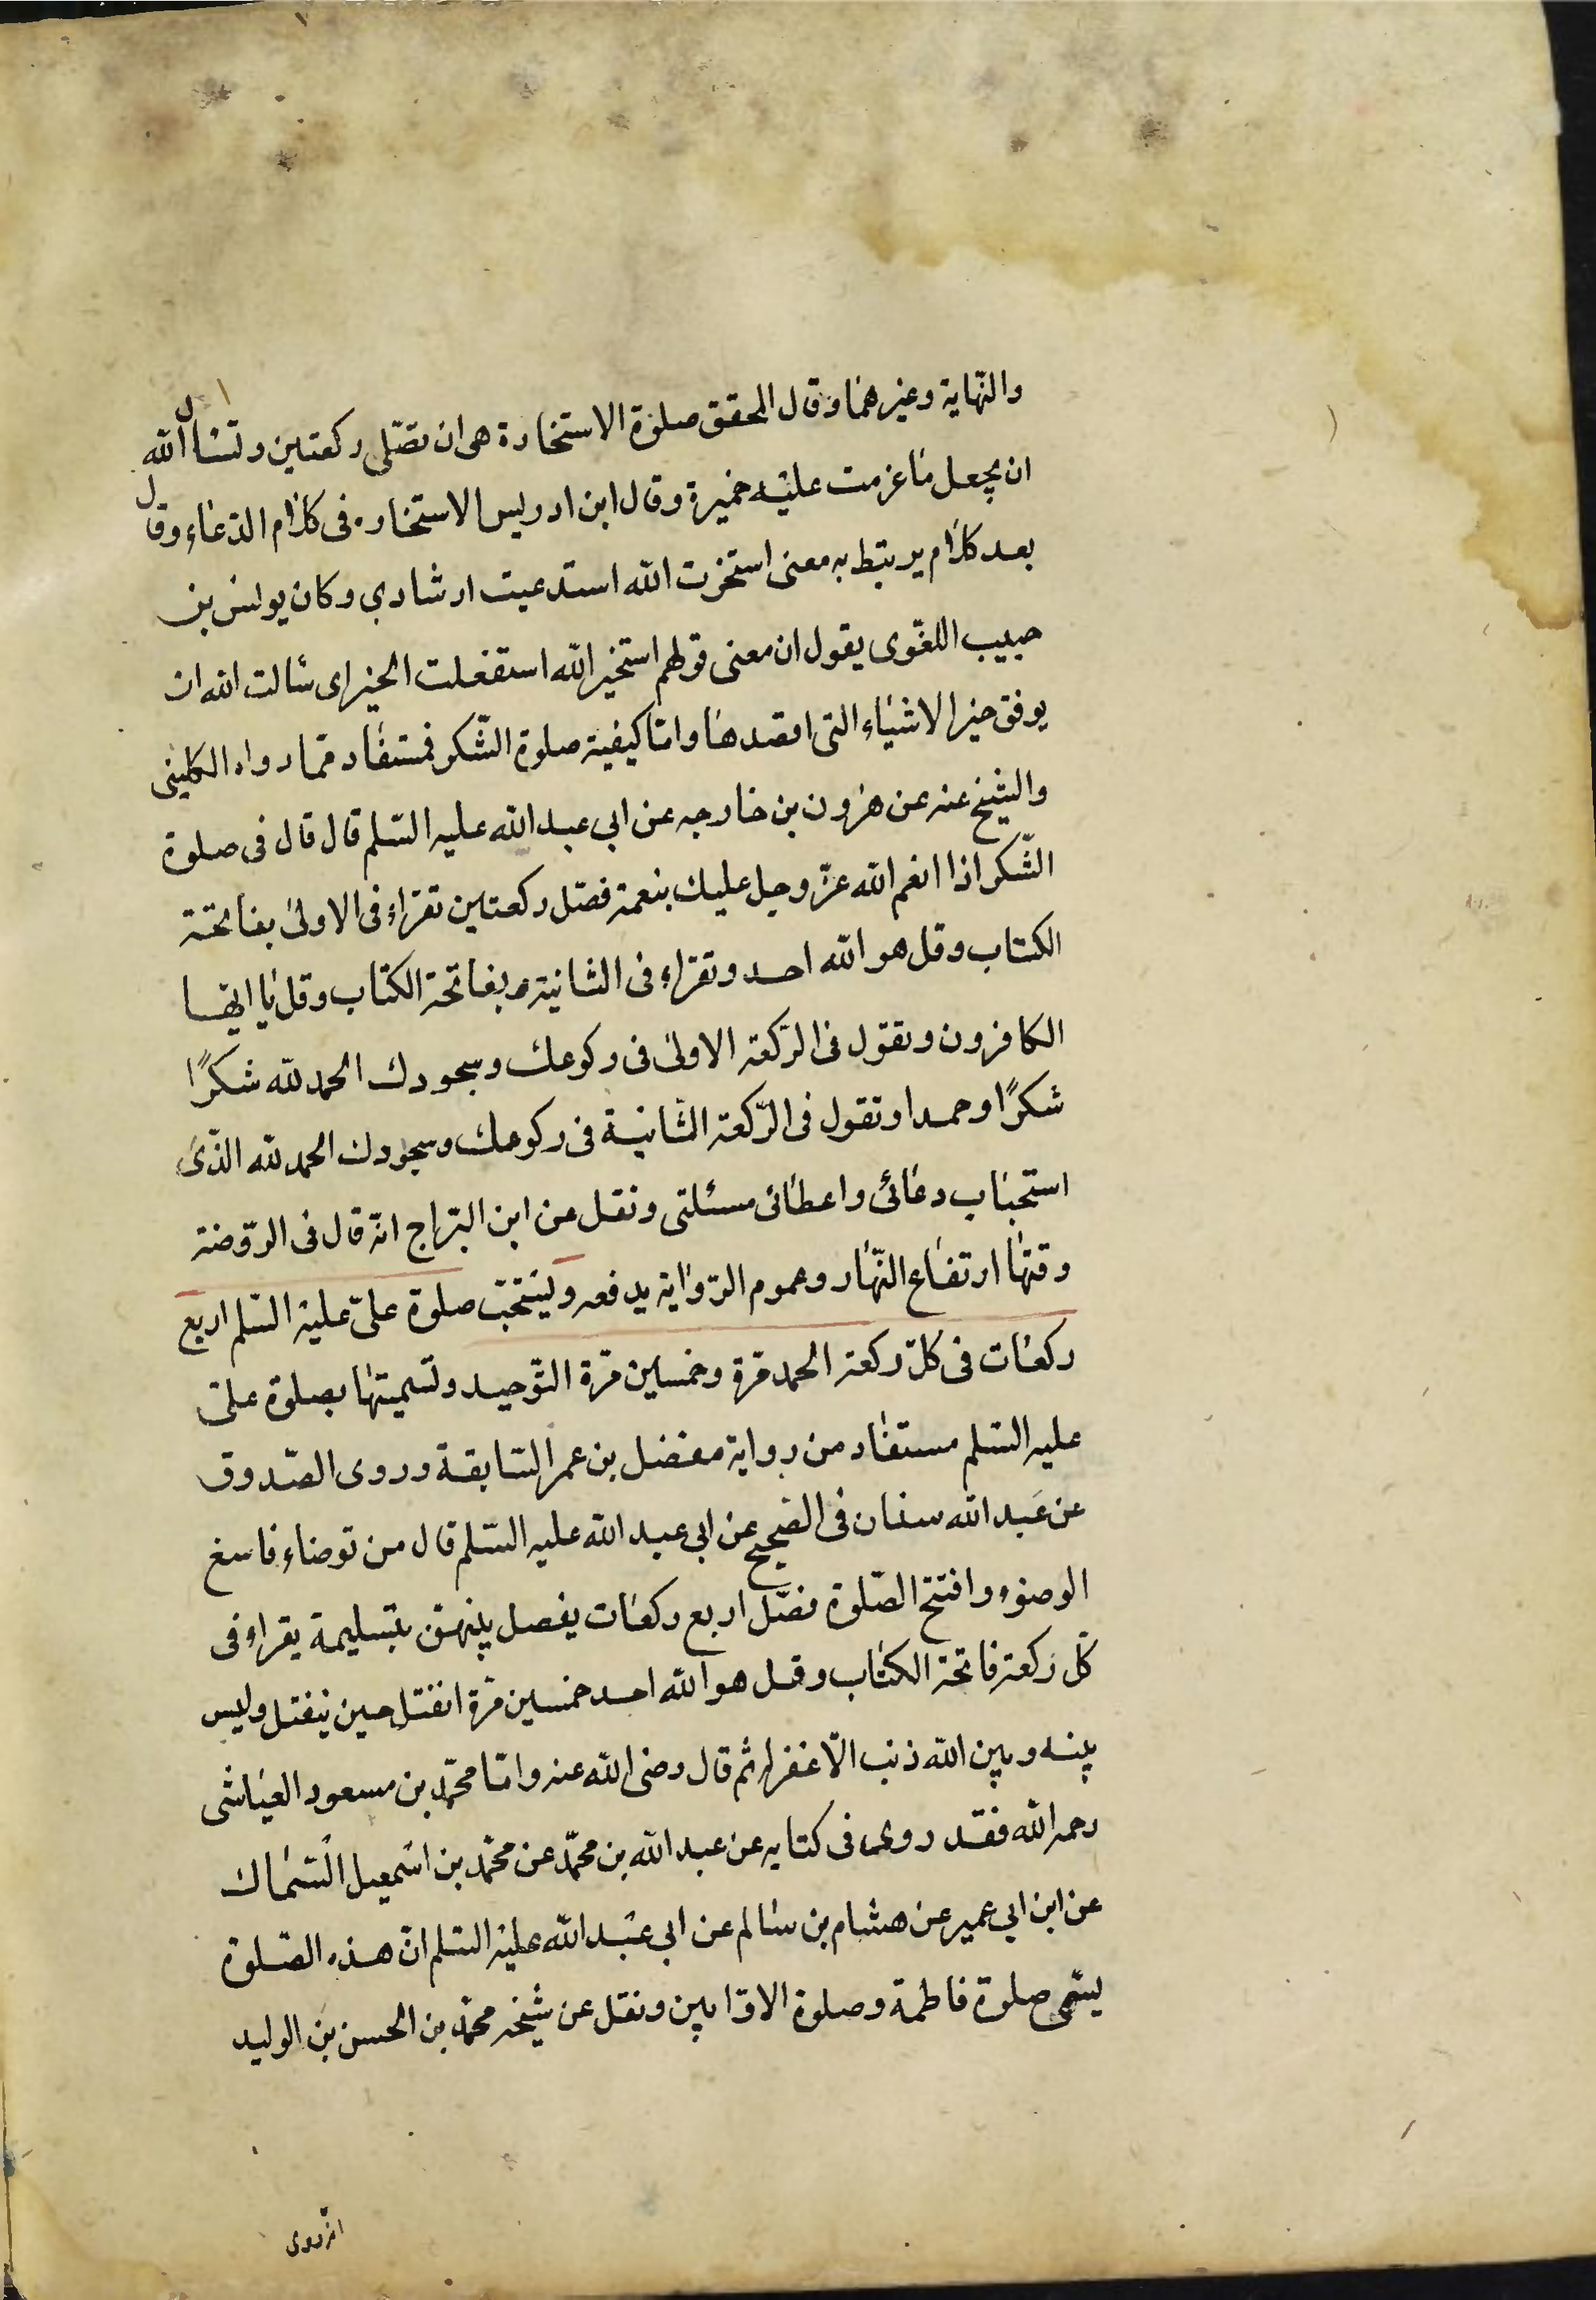 والنهاية وغيرهما وقال المحقق صلوة الاستخارة هى ان تصلى ركعتين وتسأل الله
ان يجعل ما عزمت عليه خيرة وقال ابن ادريس الاستخاره فى كلام الدعاء وقال
بعد كلام يرتبط به معنى استخرت الله استدعيت ارشادي وكان يونس بن
حبيب اللغوى يقول ان معنى قولهم استخير الله استفعلت الخير اى سالت الله ان
يوفق خير الاشياء التى اقصدها واما كيفية صلوة الشكر فمستفاد مما رواه الكلينى
والشيخ عنه عن هرون بن خارجه عن ابي عبد الله عليه السلم قال قال فى صلوة
الشكر اذا انعم الله عز وجل عليك بنعمة فصل ركعتين تقراء فى الاولى بفاتحة
الكتاب وقل هو الله احد وتقراء فى الثانية بفاتحة الكتاب وقل يا ايها
الكافرون وتقول فى الركعة الاولى فى ركوعك وسجودك الحمد لله شكرًا
شكرًا وحمدا وتقول فى الركعة الثانية فى ركوعك وسجودك الحمد لله الذى
استجاب دعائى واعطائى مسئلتى ونقل عن ابن البراج انه قال فى الروضة
وقتها ارتفاع النهار وعموم الرواية يدفعه ويستحب صلوة على عليه السلم اربع
ركعات فى كل ركعة الحمد مرة وخمسين مرة التوحيد وتسميتها بصلوة على
عليه السلم مستفاد من رواية مفضل بن عمر السابقة وروى الصدوق
عن عبد الله سنان فى الصحيح عن ابي عبد الله عليه السلم قال من توضاء فاسبغ
الوضوء وافتتح الصلوة فصل اربع ركعات يفصل بينهن بتسليمة يقراء فى
كل ركعة فاتحة الكتاب وقل هو الله احد خمسين مرة انفتل حين ينفتل وليس
بينه وبين الله ذنب الا غفر له ثم قال رضى الله عنه واما محمد بن مسعود العياشى
رحمه الله فقد روى فى كتابه عن عبد الله بن محمد عن محمد بن اسمعيل السماك
عن ابن ابي عمير عن هشام بن سالم عن ابي عبد الله عليه السلم ان هذه الصلوة
يسمى صلوة فاطمة وصلوة الاوابين ونقل عن شيخه محمد بن الحسن بن الوليد
انه روى